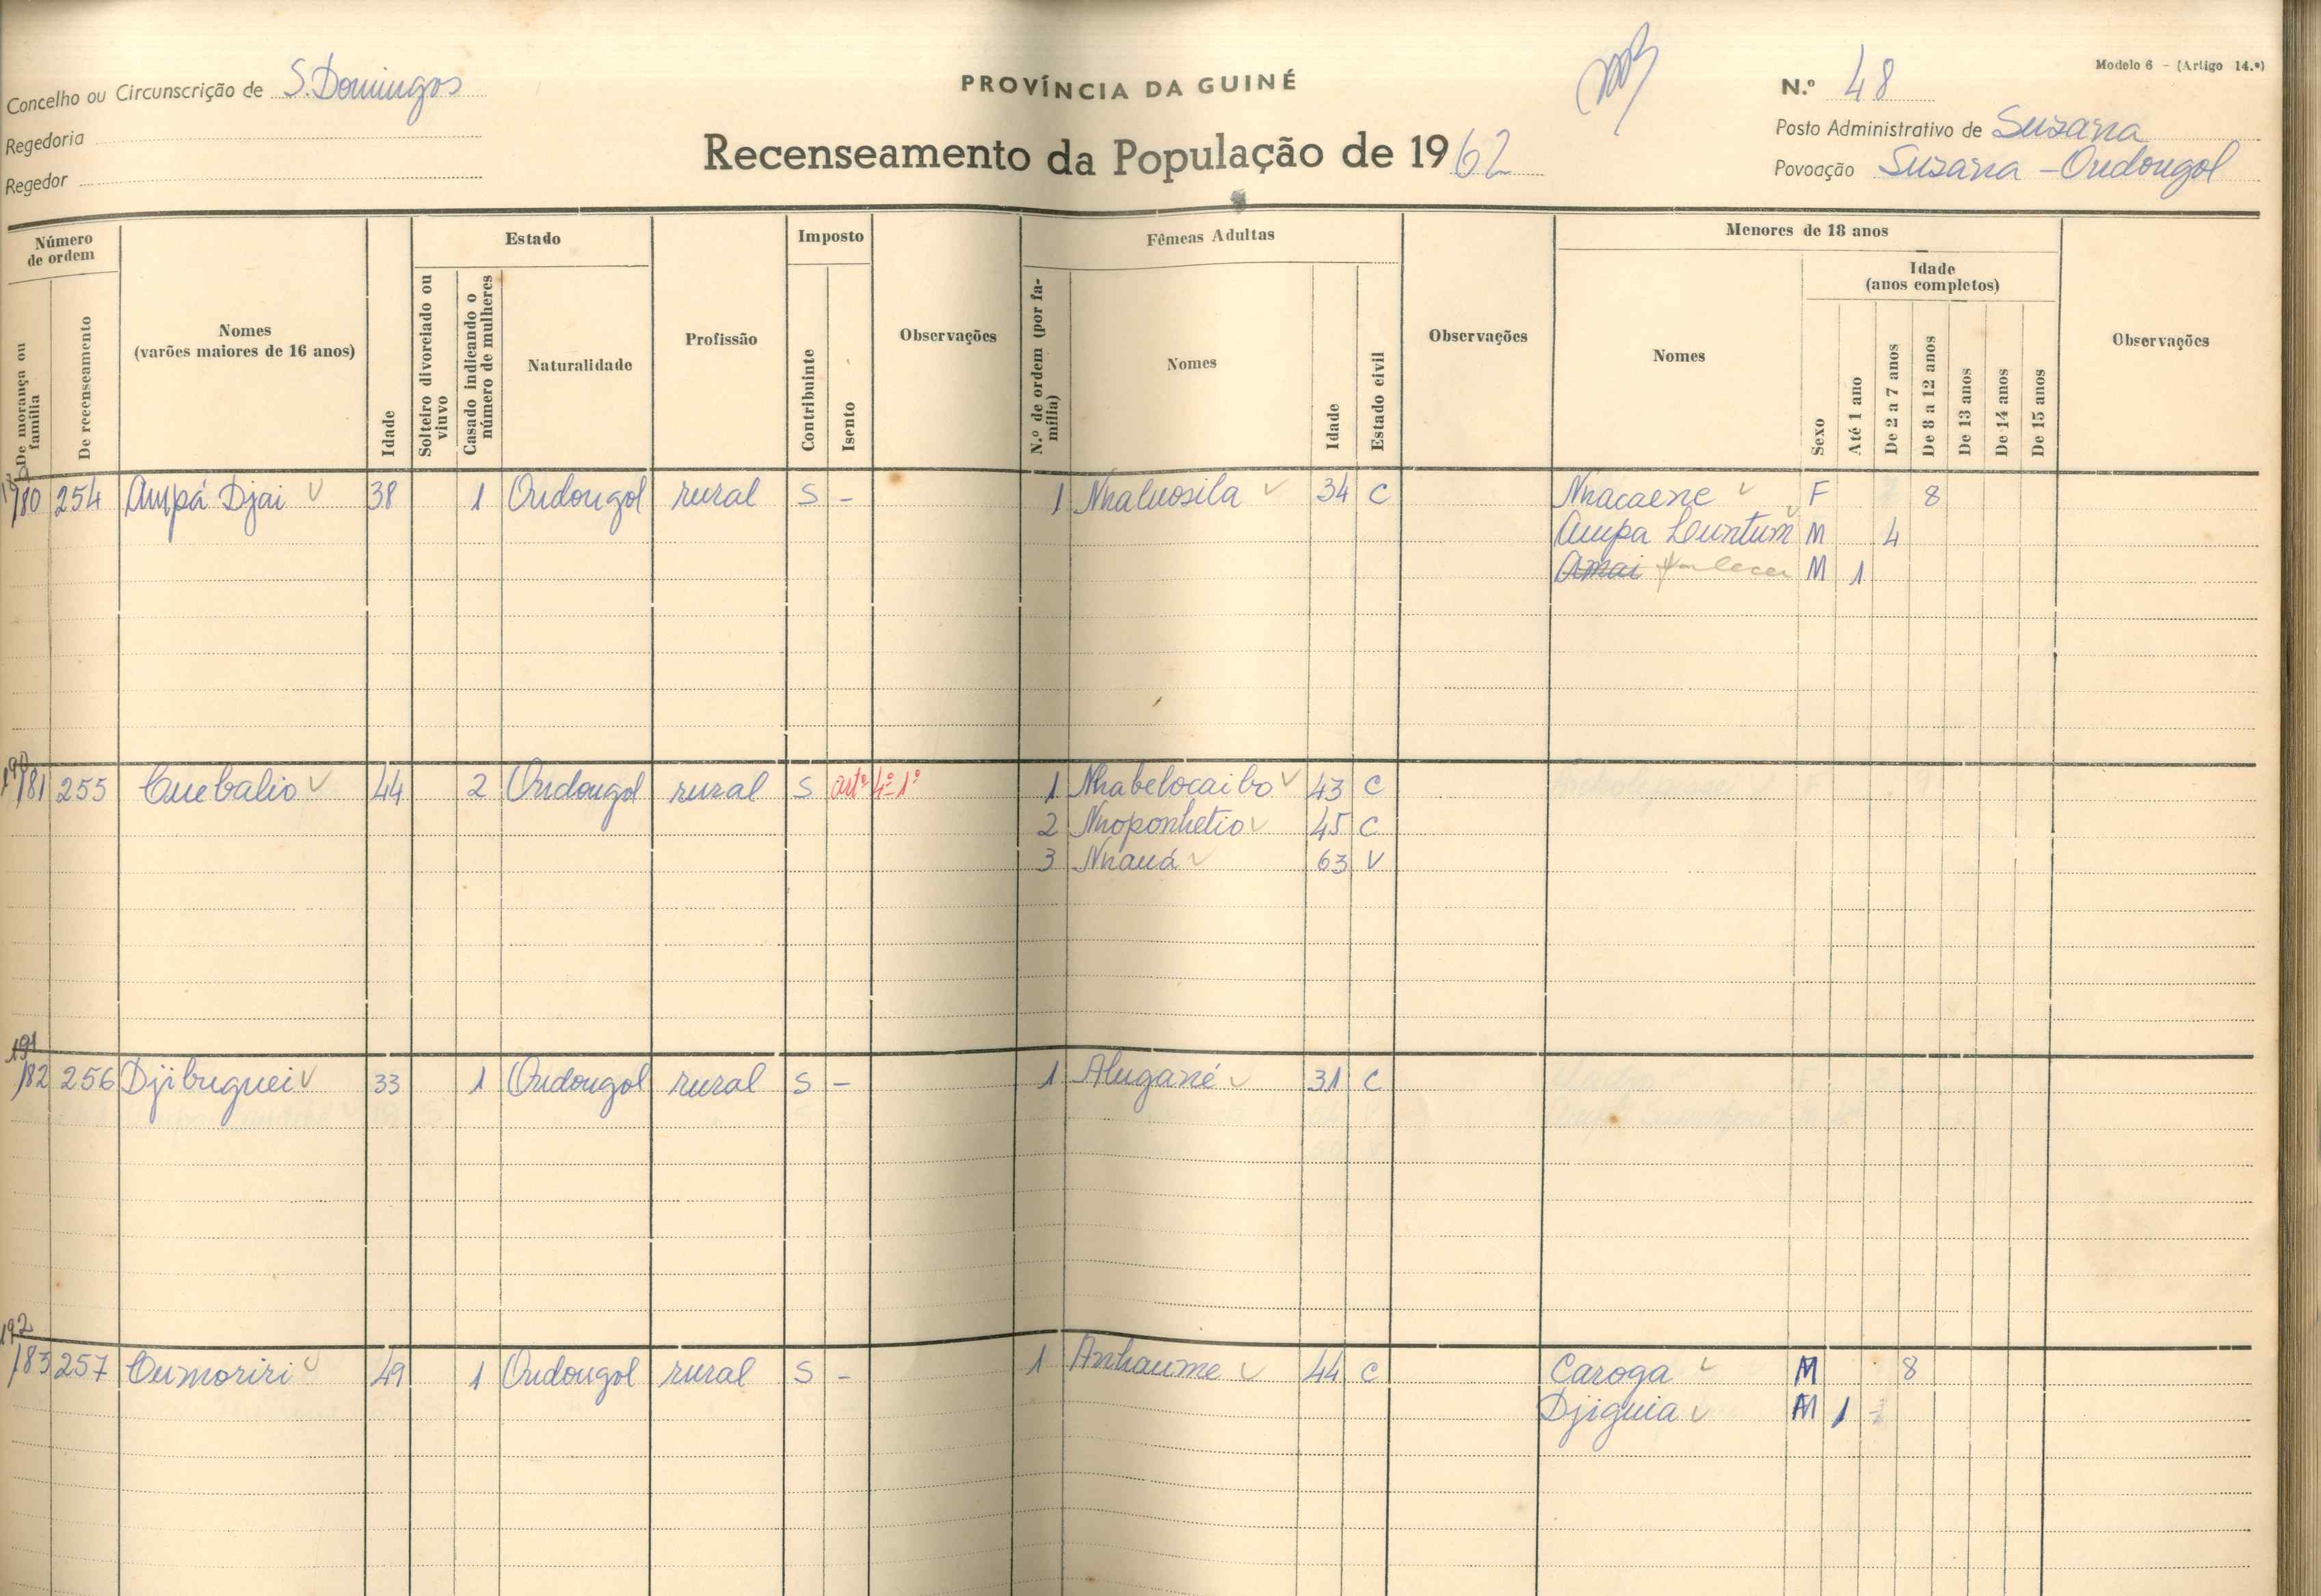 Modelo 6 – (Artigo 14.º)
Concelho ou Circunscrição de S. Domingos
Regedoria
Regedor
PROVÍNCIA DA GUINÉ
Recenseamento da População de 1962
N.º 48
Posto Administrativo de Suzana
Povoação Suzana - Oudougol
Número de ordem
De morança ou família
De recenseamento
Nomes
(varões maiores de 16 anos)
Idade
Estado
Solteiro divorciado ou viuvo
Casado indicando o número de mulheres
Naturalidade
Profissão
Imposto
Contribuinte
Isento
Observações
Fêmeas Adultas
N.º de ordem (por família)
Nomes
Idade
Estado civil
Observações
Menores de 18 anos
Nomes
Sexo
Idade
(anos completos)
Até 1 ano
De 2 a 7 anos
De 8 a 12 anos
De 13 anos
De 14 anos
De 15 anos
Observações
180 254 Ampá Djai 38 1 Oudougol rural S - 1 Nhaluosila 34 C Nhacaene F 8
Ampa Luntum M 4
Amai M 1
190
181 255 Cuebalio 44 2 Oudougol rural S artº 4º 1º 1 Nhabelocaibo 43 C
2 Nhoponhetio 45 C
3 Nhauá 63 V
191
182 256 Djibuguei 33 1 Oudougol rural S - 1 Alugané 31 C
192
183 257 Cumoriri 49 1 Oudougol rural S - 1 Anhaume 44 C Caroga M 8
Djiguia M 1